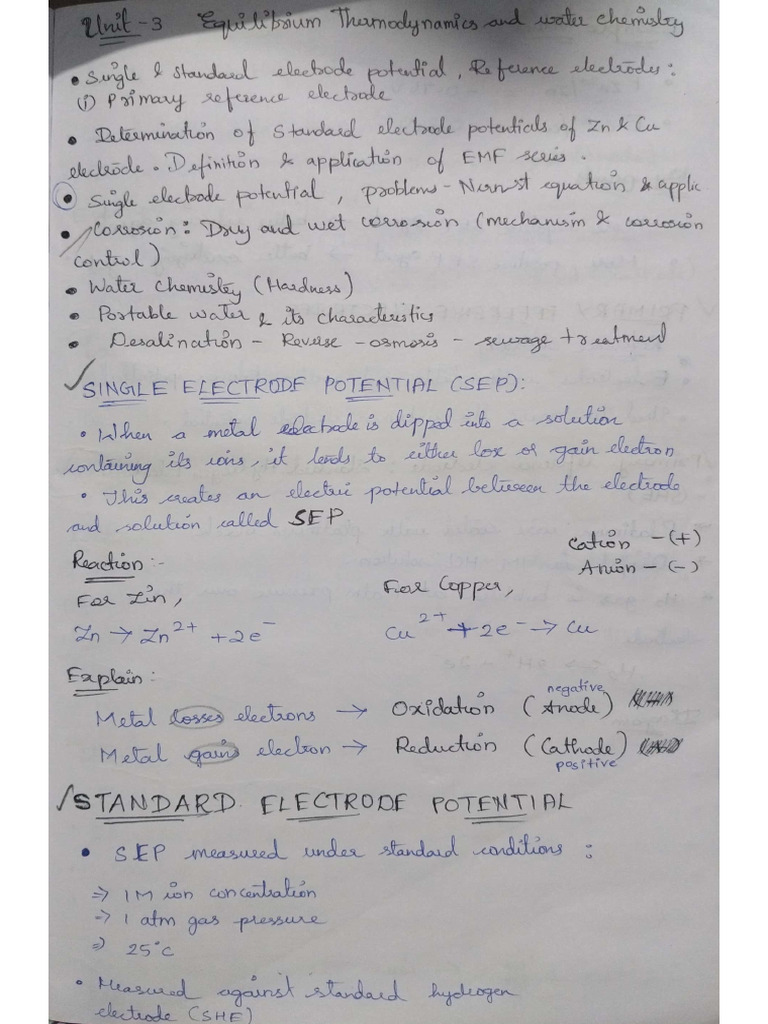 Unit-3 Equilibrium Thermodynamics and water chemistry
• Single & standard electrode potential, Reference electrodes:
(i) Primary reference electrode
• Determination of Standard electrode potentials of Zn & Cu
electrode. Definition & application of EMF series.
• Single electrode potential, problems - Nernst equation & applic
• Corrosion: Dry and wet corrosion (mechanism & corrosion
control)
• Water chemistry (Hardness)
• Portable water & its characteristics
• Desalination - Reverse - osmosis - sewage treatment
✓ SINGLE ELECTRODE POTENTIAL (SEP):
• When a metal electrode is dipped into a solution
containing its ions, it tends to either lose or gain electron
• This creates an electric potential between the electrode
and solution called SEP
Reaction:-
Cation - (+)
Anion - (-)
For Zin,
For Copper,
Zn → Zn²⁺ + 2e⁻
Cu²⁺ + 2e⁻ → Cu
Explain:
Metal losses electrons → Oxidation (Anode) negative
Metal gain electron → Reduction (Cathode) positive
✓ STANDARD ELECTRODE POTENTIAL
• SEP measured under standard conditions:
⇒ 1M ion concentration
⇒ 1 atm gas pressure
⇒ 25°C
• Measured against standard hydrogen
electrode (SHE)